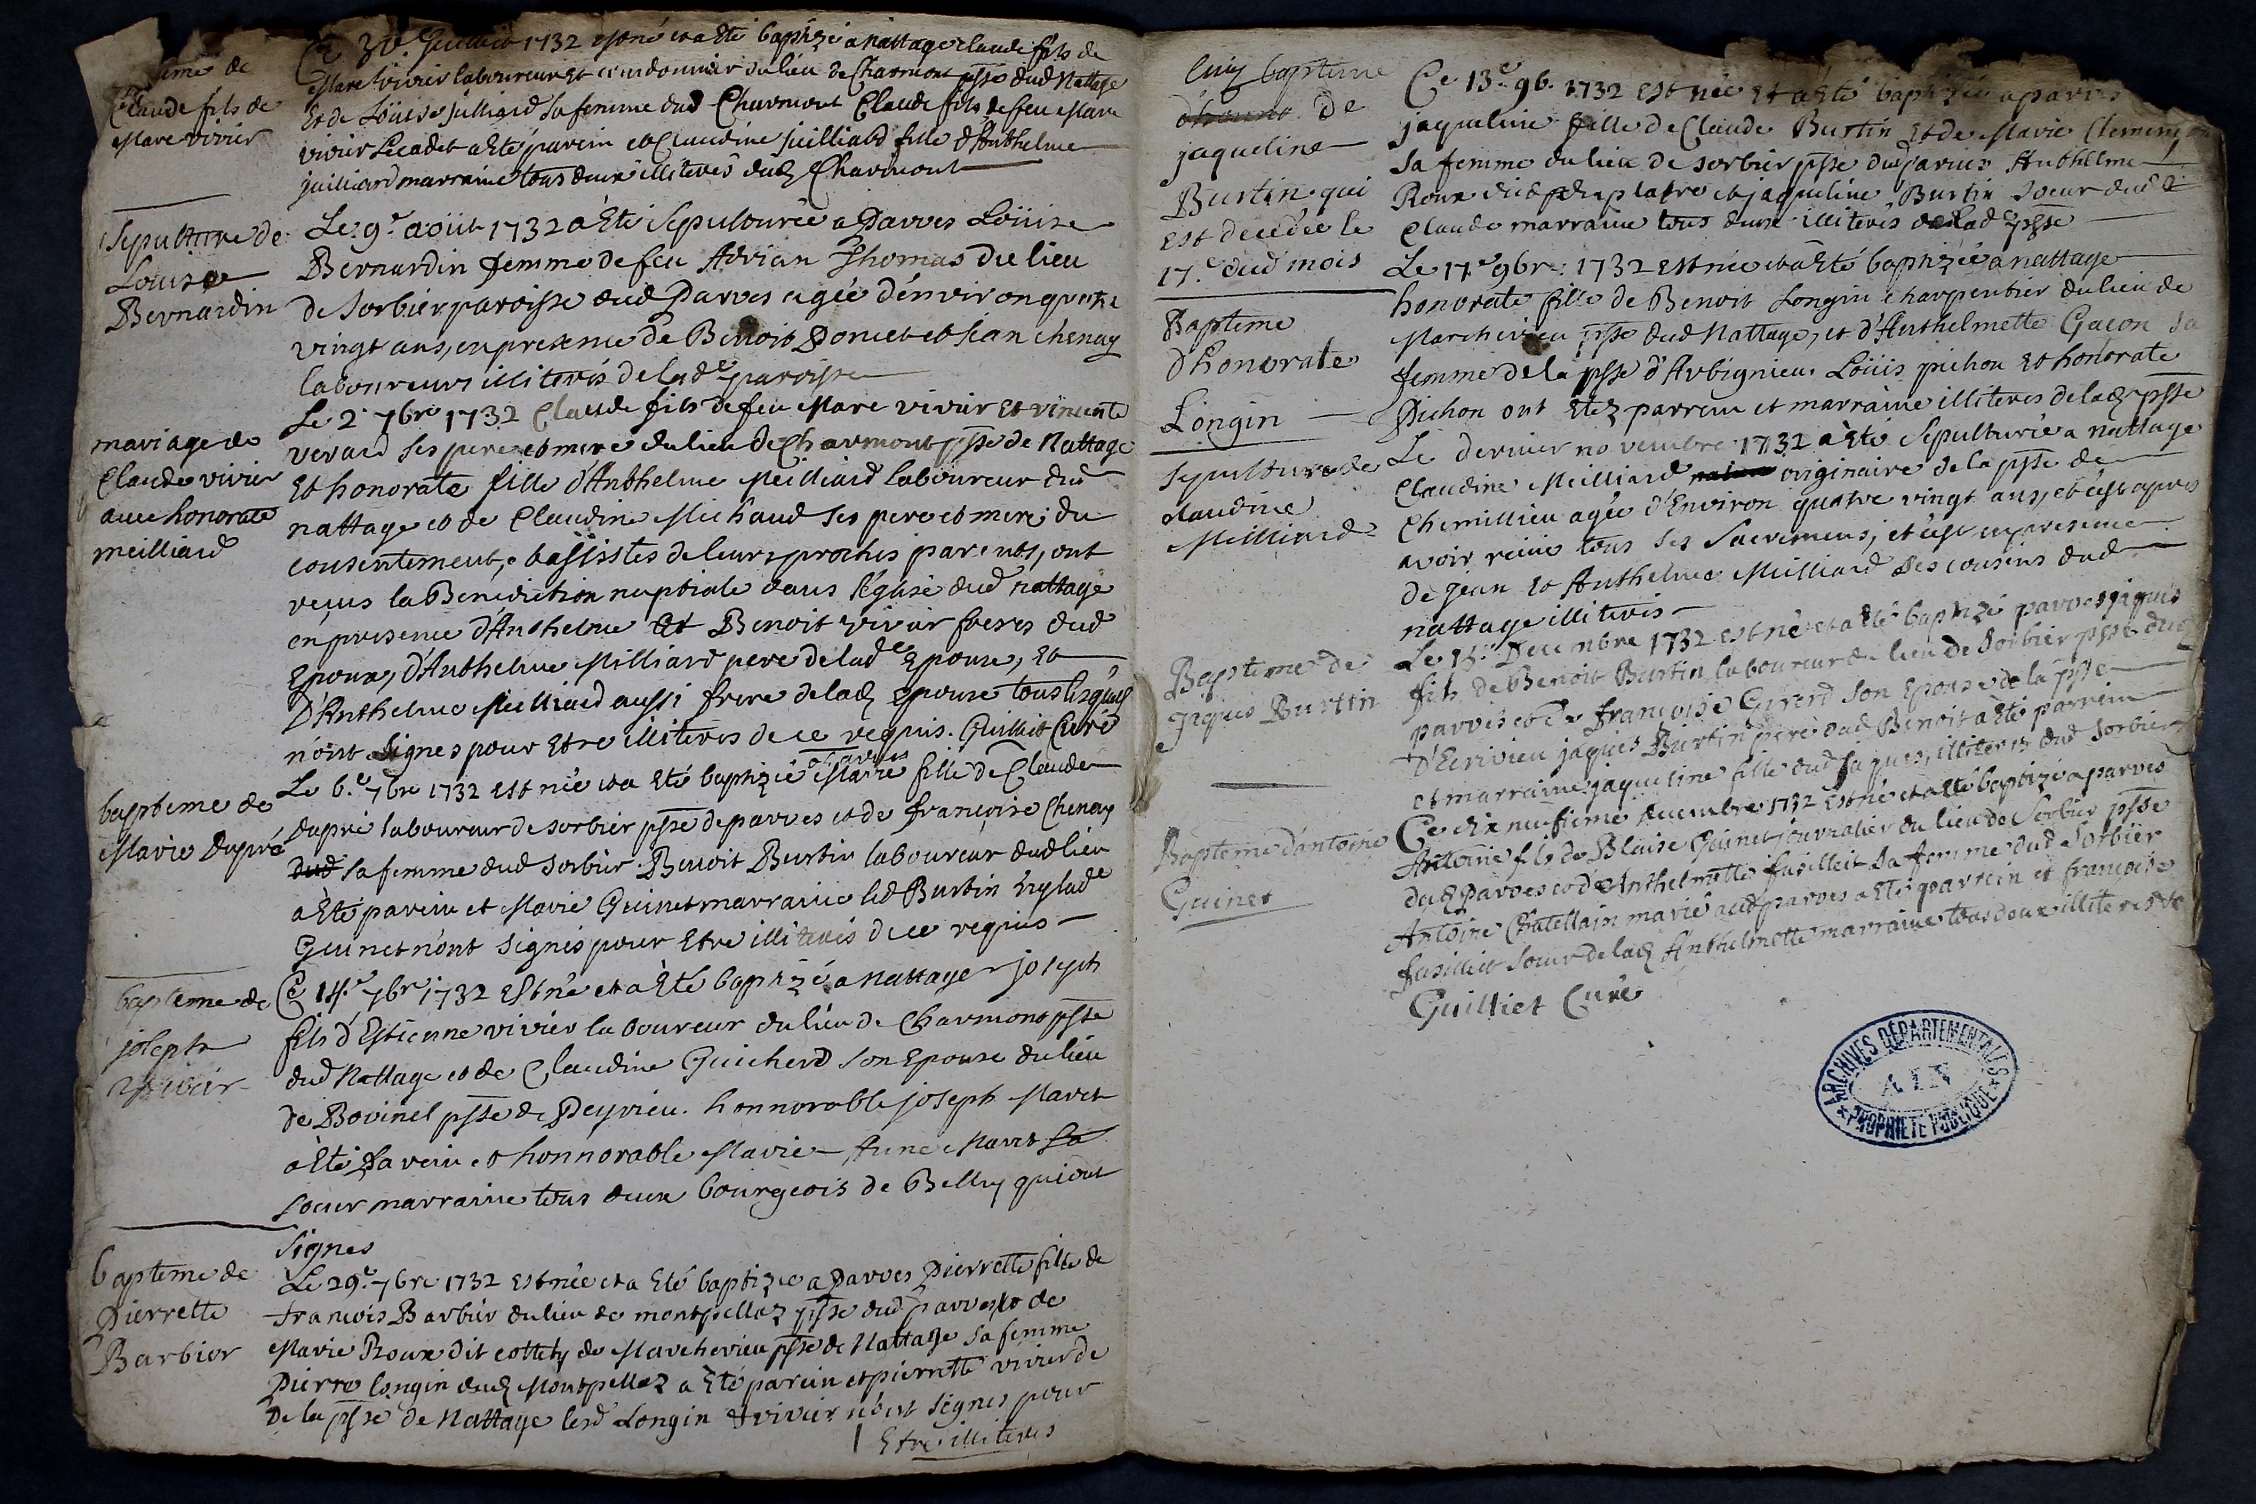 Ce 1732 est né et a Eté baptizé a Nattage claude fils de
Marc Vivier laboureur et cordonnier du lieu de Charmont psse dud Nattage
Et de Loüise juilliard sa femme dud Charmont Claude fils de feu Marc
vivier Lecadet a Eté parein et Claudine juilliard fille d'Anthelme
juilliard marraine tous deux illiterés dud Charmont
de
Claude fils de
Marc vivier
Le 9e août 1732 a Eté Sepulturée a Parves Loüise
Bernardin femme de feu Adrian Thomas du lieu
de Sorbier paroisse dud Parves agée d'environ quatre
vingt ans, en presence de Benoit Poncet et Jean chenay
laboureurs illiterés de lade paroisse
Sepulture de
Louise
Bernardin
Le 2e 7bre 1732 Claude fils de feu Marc vivier et vincente
verard ses pere et mere du lieu de Charmont psse de Nattage
Et honorate fille d'Anthelme Meilliard laboureur dud
nattage et de Claudine Michaud ses pere et mere du
consentement, et assistés de leurs proches parents, ont
reçus la Benediction nuptiale dans l'église dud nattage
en presence d'Anthelme Et Benoit vivier freres dud
Epoux, d'Anthelme Milliard pere de lade Epouse, et
D'Anthelme Meilliard aussi frere de lad Epouse tous lesquels
n'ont signes pour Etre illiterés de ce requis. Guilliet Curé
mariage de
Claude vivier
avec honorate
meilliard
Le 6.e 7bre 1732 est née et a Eté baptizée a Parves Marie fille de Claude
dupré laboureur de sorbier psse de parves et de francoise Chenay
dud sa femme dud sorbier. Benoit Burtin laboureur dud lieu
a Eté parein et Marie Guinet marraine led Burtin lade
Guinet n'ont signés pour Etre illiterés de ce requis
baptéme de
Marie Dupré
Ce 14.e 7bre 1732 Est né et a Eté baptizé a Nattage joseph
fils d'Estienne vivier laboureur du lieu de Charmont psse
dud Nattage et de Claudine Guicherd son Epouse du lieu
de Bovinel psse de Peyrieu. honnorable joseph Maret
a Eté Parein et honnorable Marie Anne Maret sa
soeur marraine tous deux bourgeois de Belley qui ont
signes
baptéme de
joseph
vivier
Le 29.e 7bre 1732 est née et a Eté baptizée a Parves Pierrette fille de
francois Barbier du lieu de montpellaz psse dud parves et de
Marie Roux dit cottety de Marcherieu psse de Nattage sa femme
Pierre longin dud Montpellaz a Eté parein et pierrette vivier de
De la psse de Nattage lesd Longin & vivier n'ont signes pour
Etre illiterés
baptéme de
Pierrette
Barbier
Ce 13.e 9b. 1732 est née et a Eté baptizée a parves
jaqueline fille de Claude Burtin et de Marie Clement
sa femme du lieu de sorbier psse dud parves Anthelme
Roux et jaqueline Burtin soeur dud
Claude marraine tous deux illiterés de lad psse
baptéme
de
jaqueline
Burtin qui
est decedée le
17.e dud mois
Le 17.e 9bre 1732 est née et a Eté baptizée a nattage
honorate fille de Benoit Longin charpentier du lieu de
Marcherieu psse dud Nattage, et d'Anthelmette Gacon sa
femme de la psse d'Arbignieu. Loüis pichon et honorate
Pichon ont Etez parrein et marraine illiteres de lad psse
Baptéme
d'honorate
Longin
Le dernier novembre 1732 a Eté sepulturée a nattage
Claudine Meilliard originaire de la psse de
Chemillieu agée d'Environ quatre vingt ans, et c'est apres
avoir reçue tous ses sacremens, et c'est en presence
de Jean et Anthelme Meilliard ses cousins dud
nattage illiterés
Sepulture de
claudine
Meilliard
Le Decembre 1732 est né et a Eté baptizé parves jaques
fils de Benoit Burtin laboureur du lieu de Sorbier psse dud
parves et de francoise Girerd son Epouse de la psse
D'Ecrivieu jaques Burtin pere dud Benoit a Eté parrein
et marraine jaqueline fille dud jaques, illiterés dud sorbier
Baptéme de
jaques Burtin
Ce dix neufieme decembre 1732 Est né et a Eté baptizé a parves
Antoine fils de Blaise Guinet journalier du lieu de Sorbier psse
dud Parves et d'Anthelmette fusilliet sa femme dud Sorbier
Antoine Chatellain marié aud parves a Eté parrein et francoise
fusilliet soeur de lad Anthelmette marraine tous deux illiterés
Guilliet Curé
Baptéme d'antoine
Guinet
ARCHIVES DÉPARTEMENTALES
AIN
PROPRIÉTÉ PUBLIQUE